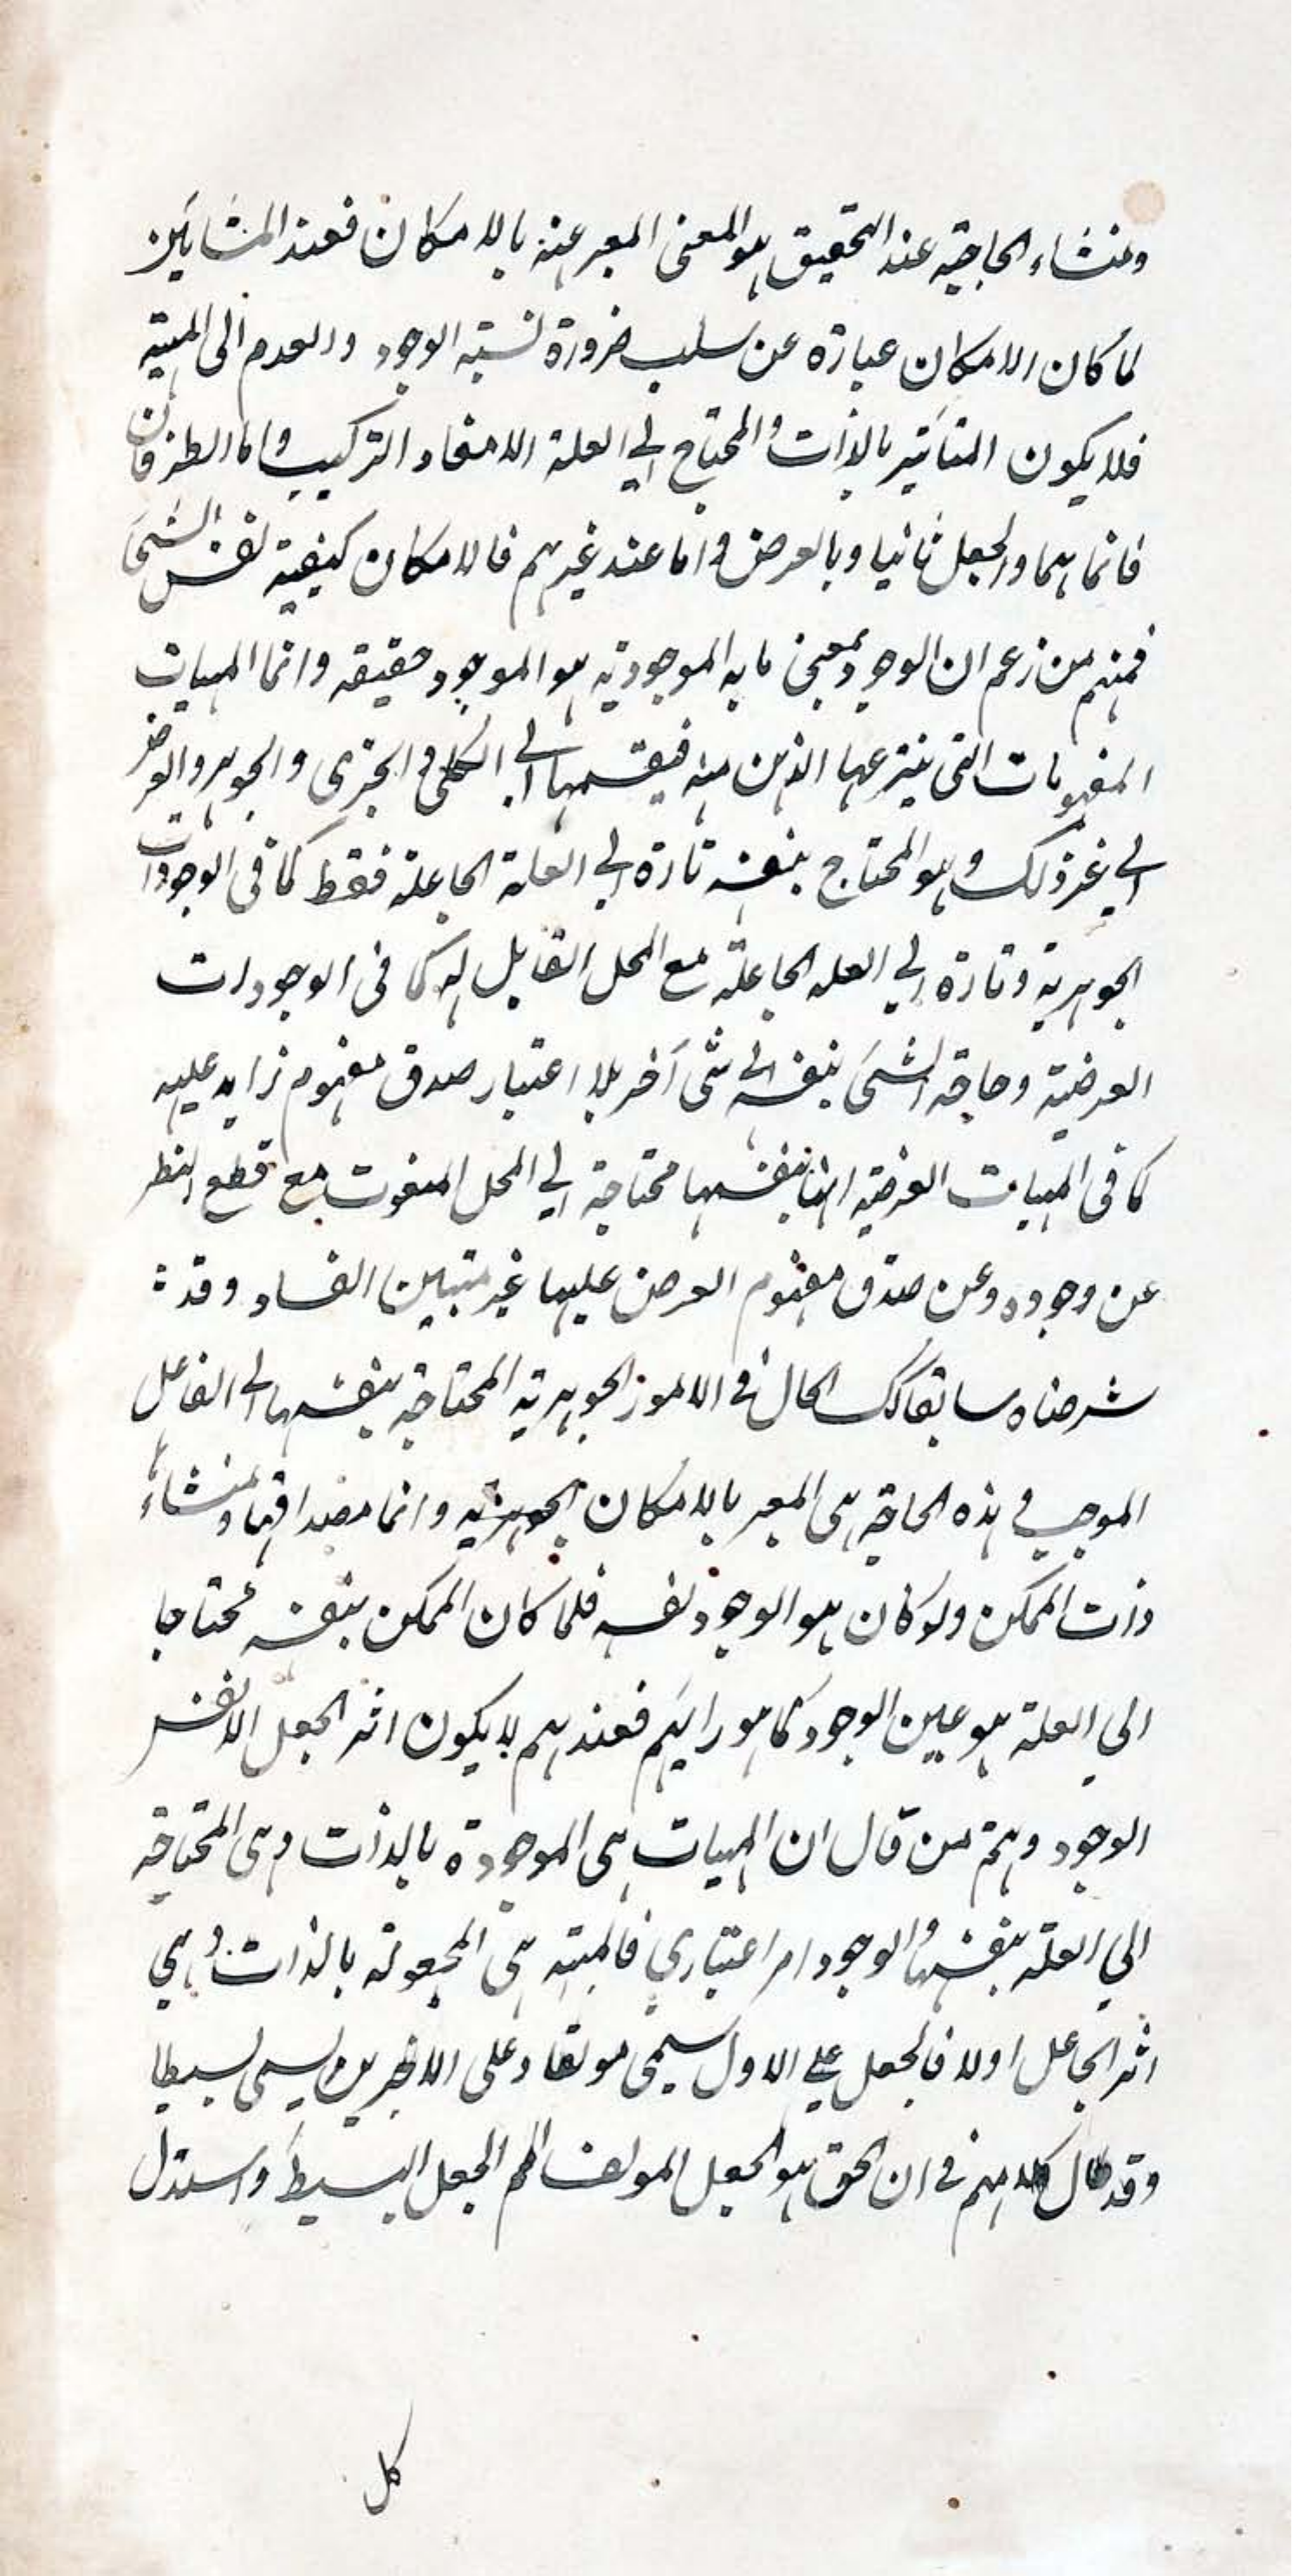 ومنشاء الحاجية عند التحقيق هو المعنى المعبر عنه بالامكان فعند المشائين
لما كان الامكان عبارة عن سلب ضرورة نسبته الوجود والعدم الى المهية
فلا يكون المتاثير بالذات والمحتاج الي العلة الا مفاد التركيب واما الطرفان
فانما هما والجعل ثانيا وبالعرض واما عند غيرهم فالامكان كيفية نفس الشئ
فمنهم من زعم ان الوجود بمعنى ما به الموجودية هو الموجود حقيقه وانما المهيات
المفهومات التى ينتزعها الذهن منه فيقسمها الي الكلى و الجزى والجوهر والعرض
الي غير ذلك وهو المحتاج بنفسه تارة الي العلة الجاعلة فقط كما فى الوجودات
الجوهرية وتارة الي العله الجاعلة مع المحل القابل له كما فى الوجودات
العرضية وحاجة الشئ بنفسه الى شئ آخر بلا اعتبار صدق مفهوم زايد عليه
كما فى المهيات العرضية انها بنفسها محتاجة الي المحل المنعوت مع قطع النظر
عن وجوده وعن صدق مفهوم العرض عليها غير متبين الفساد وقد
شرحناه سابقا كك الحال فى الامور الجوهرية المحتاجة بنفسها الى الفاعل
الموجب فى هذه الحاجة هى المعبر بالامكان الجوهريه وانما مصداقها ومنشاء
ذات الممكن ولو كان هو الوجود نفسه فلما كان الممكن بنفسه محتاجا
الي العلة هو عين الوجود كما هو رايهم فعندهم لا يكون اثر الجعل الا نفس
الوجود ومنهم من قال ان المهيات هى الموجودة بالذات وهى المحتاجة
الي العلة بنفسها والوجود امر اعتباري فالمهية هى المجعولة بالذات وهي
اثر الجاعل اولا فالجعل علي الاول يسمى مولفا وعلى الاخرين يسمى بسيطا
وقد طال كلامهم فى ان الحق هو الجعل المولف ام الجعل البسيط واستدل
كل